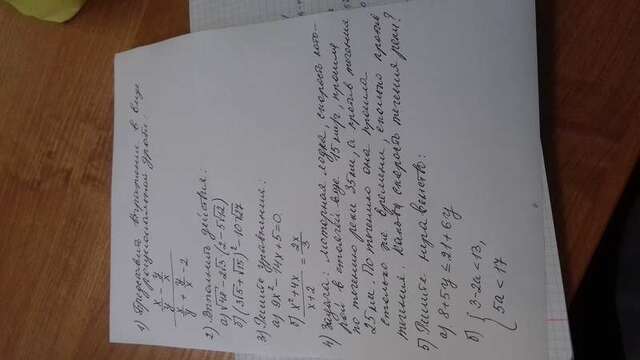 1) Представить выражение в виде
рациональной дроби:
x/y - y/x
x/y + y/x - 2
2) Выполнить действия:
а) √48 - 2√3 (2 - 5√12)
б) (3√5 + √15)² - 10√27
3) Решите уравнения:
а) 9x² - 14x + 5 = 0
б) (x² + 4x)/(x + 2) = 2x/3
4) Задача: моторная лодка, скорость кото-
рой в стоячей воде 15 км/ч, прошла
по течению реки 35 км, а против течения
25 км. По течению она прошла
столько же времени, сколько против
течения. Какова скорость течения реки?
5) Решите неравенств:
а) 8 + 5y ≤ 21 + 6y
б) { 3 - 2a < 13,
5a < 17